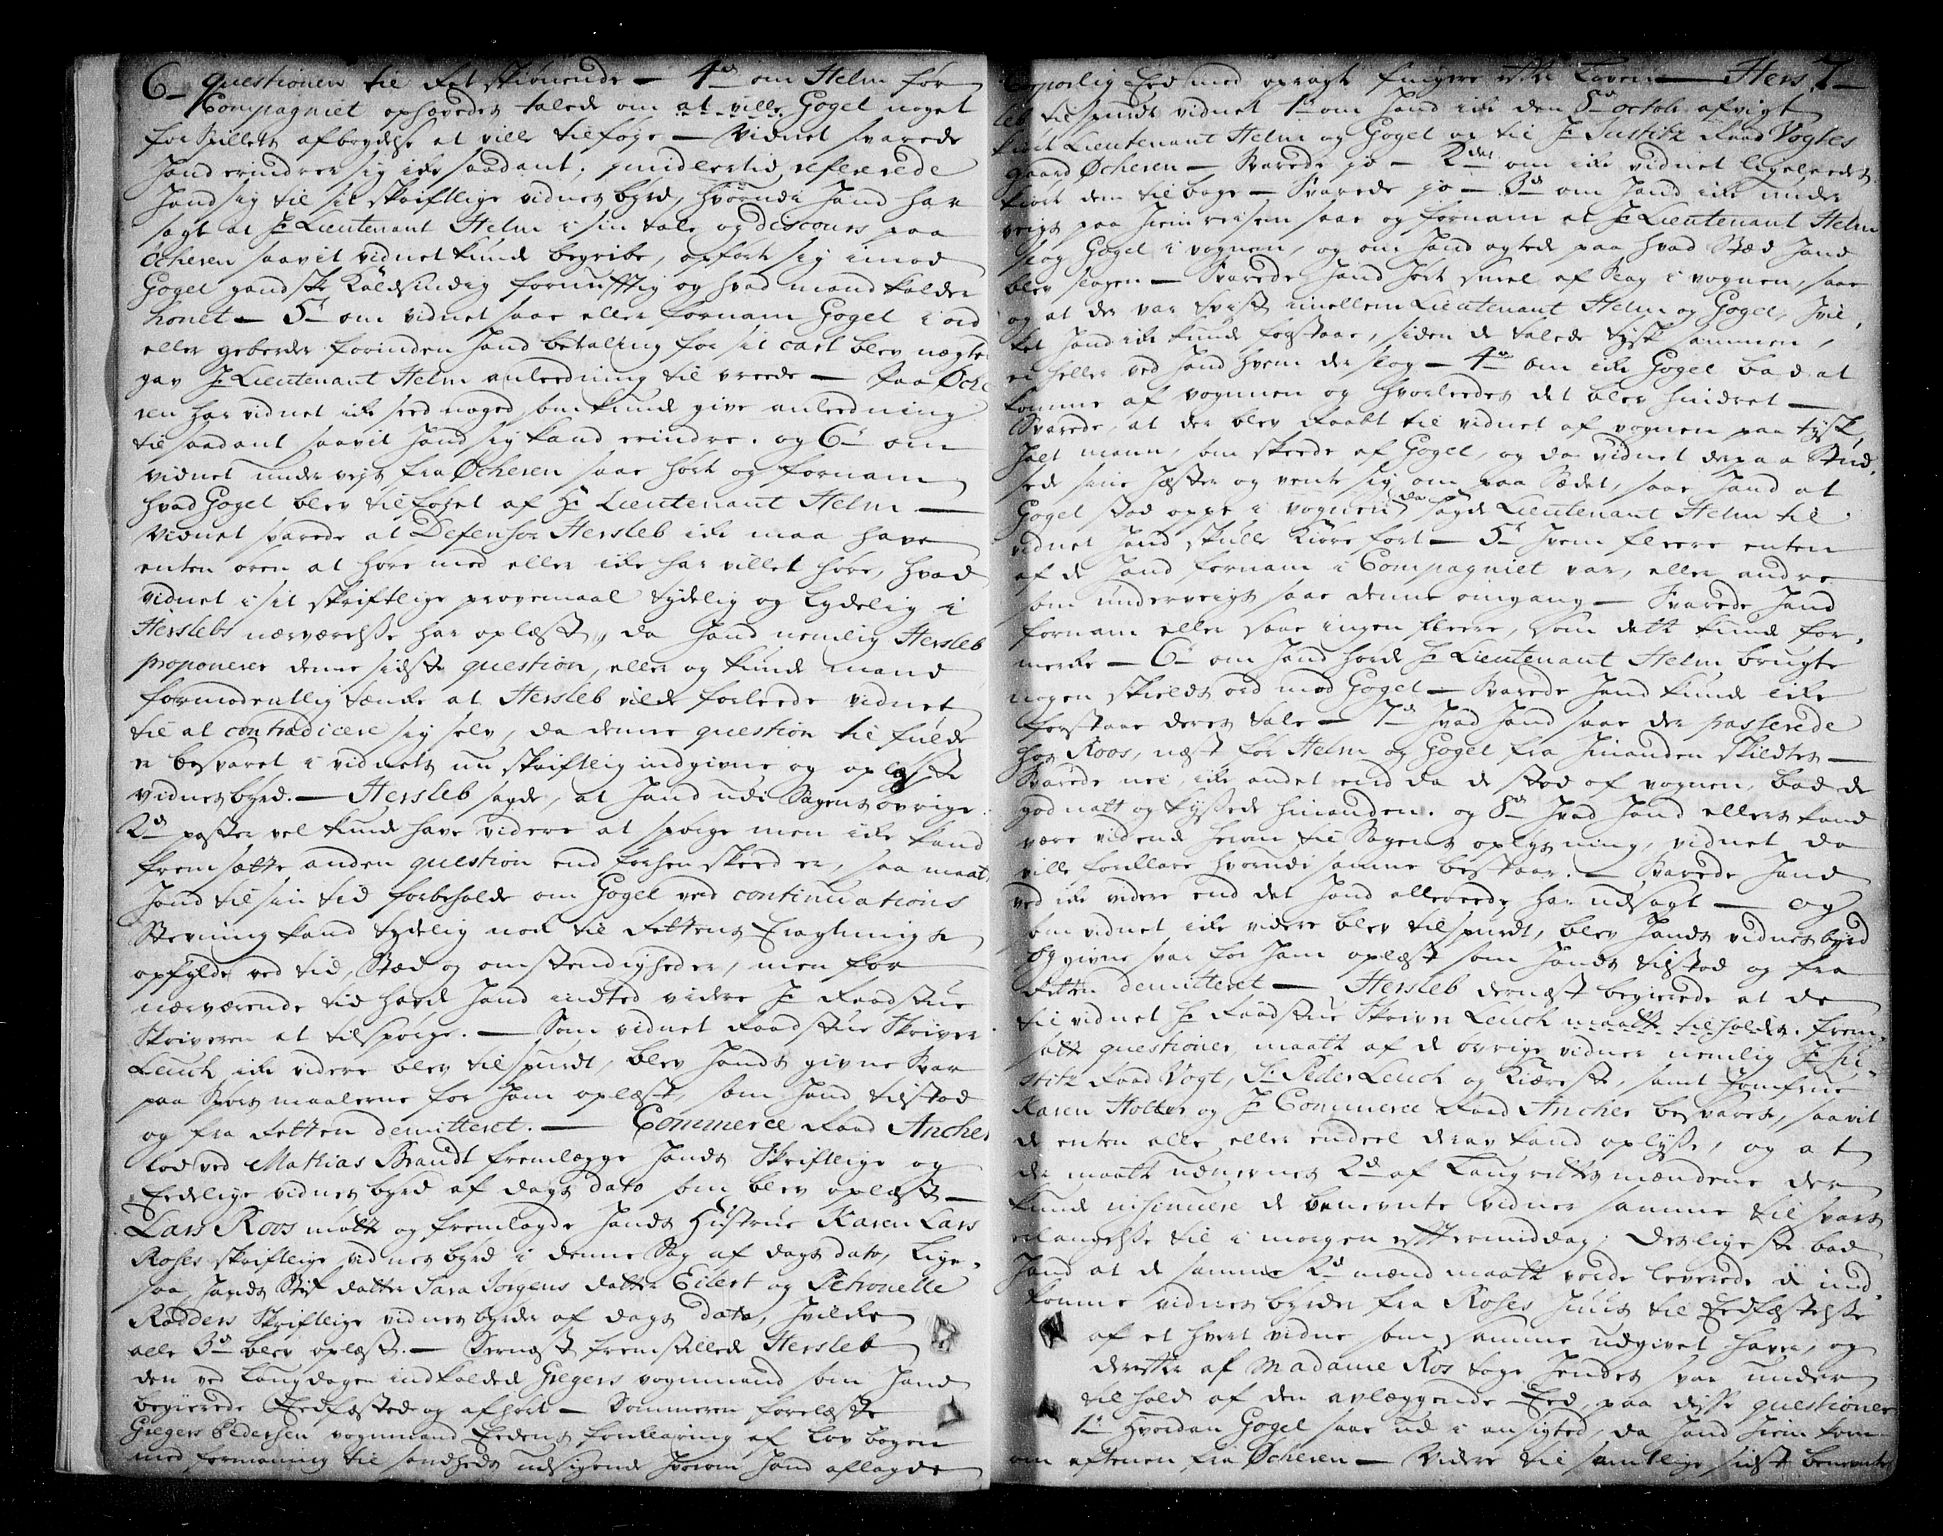 6 questionen til det skiønende — 4de om Helm før
Compagniet ophævedes talede om at ville Gogel noget
for Spillets afbrydelse at ville tilføye — Vidnet svarede
hand erindrer sig ike saadant, imidlertid refererede
hand sig til sit skriftlige vidnesbyrd, hvorudi hand har
sagt at Hr Lieutenant Helm i sin tale og discours paa
Ocheren saavit vidnet kunde begribe, opførte sig imod
Gogel gandske Koldsindig fornufftig og hvad mand kalder
honet — 5te om vidnet saae eller fornam Gogel i ord
eller geberder forinden hand betaling for sit cart blev nægtet
gav Hr Lieutenant Helm anleedning til vreede — Paa Oche
ren har vidnet ike seed noged som kunde give anleedning
til saadant saavit hand sig kand erindre. og 6te om
vidnet undervejs fra Ocheren saae hørte og fornam
hvad Gogel blev tilføjet af Hr Lieutenant Helm —
vidnet svarede at Defensor Hersleb ike maa have
enten øren at høre med eller ike har villet høre, hvad
vidnet i sit skriftlige provemaal tydelig og lydelig i
Herslebs nærværelse har oplæst, da hand nemlig Hersleb
proponerer denne sidste question, eller og kunde mand
formodentlig tænke at Hersleb vilde forleede vidnet
til at contradicere sig selv, da denne question til fulde
er besvaret i vidnets nu skriftlig indgivne og oplæste
vidnesbyrd. — Hersleb sagde, at hand udi Sagens øvrige
2de poster vel kunde have videre at spørge men ike kand
fremsætte anden question end forhen skeed er, saa maatte
hand til sin tid forbeholde om Gogel ved continuations
Stevning kand tydelig nok til Rettens
opfylde ved tid, Sted og omstendigheder, men for
nærværende tid havde hand indted videre Hr Raadstue
Skriveren at tilspørge. — Som vidnet Raadstue Skriver
Leuch ike videre blev tilspurdt, blev hands givne Svar
paa Spørsmaalerne for ham oplæst, som hand tilstod
og fra Retten demitteret. — Commerce Raad Ancher
lod ved Mathias Brandt fremlægge hands Skriftlige og
Eedelige vidnesbyrd af dags dato som blev oplæst —
Lars Roos mødte og fremlagde hands Hustrue Karen Lars
Roses skriftlige vidnesbyrd i denne Sag af dags dato, lige
saa hands Stif datter Sara Jørgens datter Eilert og Petronelle
Rødders Skriftlige vidnesbyrder af dags dato, hvilke
alle 3de blev oplæst. — Dernæst fremstillede Hersleb
den ved Laugdagen indkaldede Gregers vognmand som hand
begierede Eedfæstede og afhørt — Domeren forelæste
Gregers Pedersen vognmand Eedens forklaring af Lov bogen
med formaning til sandheds udsigende hvorom hand aflagde
Corporlig Eed med opragte fingere efter Loven — Hers 7
leb tilspurde vidnet 1te om hand ike den 8de octobr afvigt
kiørte Lieutenant Helm og Gogel op til Hr Justitz Raad Vogtes
gaard Ocheren — Svarede jo — 2det om ike vidnet ligeleedes
kiørte dem tilbage — Svarede jo — 3de om hand ike under
veigs paa hiemreisen saae og fornam at Hr Lieutenant Helm
slog Gogel i vognen, og om hand agtede paa hvad Stæd hand
blev slagen — Svarede hand hørte smel af Slag i vognen, saae
og at der var tvist imellem Lieutenant Helm og Gogel, hvil
ket hand ike kunde forstaae, siden de talede tysk sammen,
ei heller ved hand hvem der slog — 4de om ike Gogel bad at
komme af vognen og hvorleedes det blev hindret —
Svarede, at der blev Raabt til vidnet af vognen paa tysk,
halt mann, som skeede af Gogel, og da vidnet derpaa Stud
sede sine hæster og vente sig om paa Sædet, saae hand at
Gogel stod oppe i vognen, da sagde Lieutenant Helm til
vidnet hand skulle kiøre fort — 5te hvem fleere enten
af de hand fornam i Compagniet var, eller andre
som underveigs saae denne omgang — Svarede hand
fornam eller saae ingen fleere, som dette kunde for
merke — 6te om hand hørde Hr Lieutenant Helm brugte
nogen skields ord mod Gogel — Svarede hand kunde ike
forstaae deres tale — 7de hvad hand saae der passerede
hos Roos, næst før Helm og Gogel fra hinanden skildtes —
Svarede nei, ike andet end da de stod af vognen, bad de
god natt og kyssede hinanden. og 8de hvad hand ellers kand
være vidende herom til Sagens oplysning, vidnet da
ville forklare hvorudi samme bestaar. — Svarede hand
ved ike videre end det hand allereede har udsagt — og
som vidnet ike videre blev tilspurdt, blev hands vidnesbyrd
og givne svar for ham oplæst som hands tilstod og fra
Retten demitteret — Hersleb dernæst begierede at de
til vidnet Hr Raadstue Skriver Leuch maatte tilholdes. frem
satte questioner, maatte af de øvrige vidner nemlig Hr Ju
stitz Raad Vogt, Sr Peder Leuch og Kiæreste, samt Jomfrue
Karen Holter og Hr Commerce Raad Ancher besvares, saavit
de enten alle eller endeel derav kand oplyse, og at
der maatte udnevnes 2de af Laugrettes mændene der
kunde insinuere de benevnte vidner samme til Svars
erlangelse til i morgen eftermiddag; Desligeste bad
hand at de samme 2de mænd maatte vorde leverede de ind
komne vidnesbyrder fra Roses huus til Eedfæstelse
af et hvert vidne som samme udgivet haver, og
derefter af Madame Ros tage hendes svar under
tilhold af den avlæggende Eed, paa disse questioner
1te Hvordan Gogel saae ud i ansigted, da hand hiem kom
om aftenen fra Ocheren — Videre til samtlige sidst benevnte